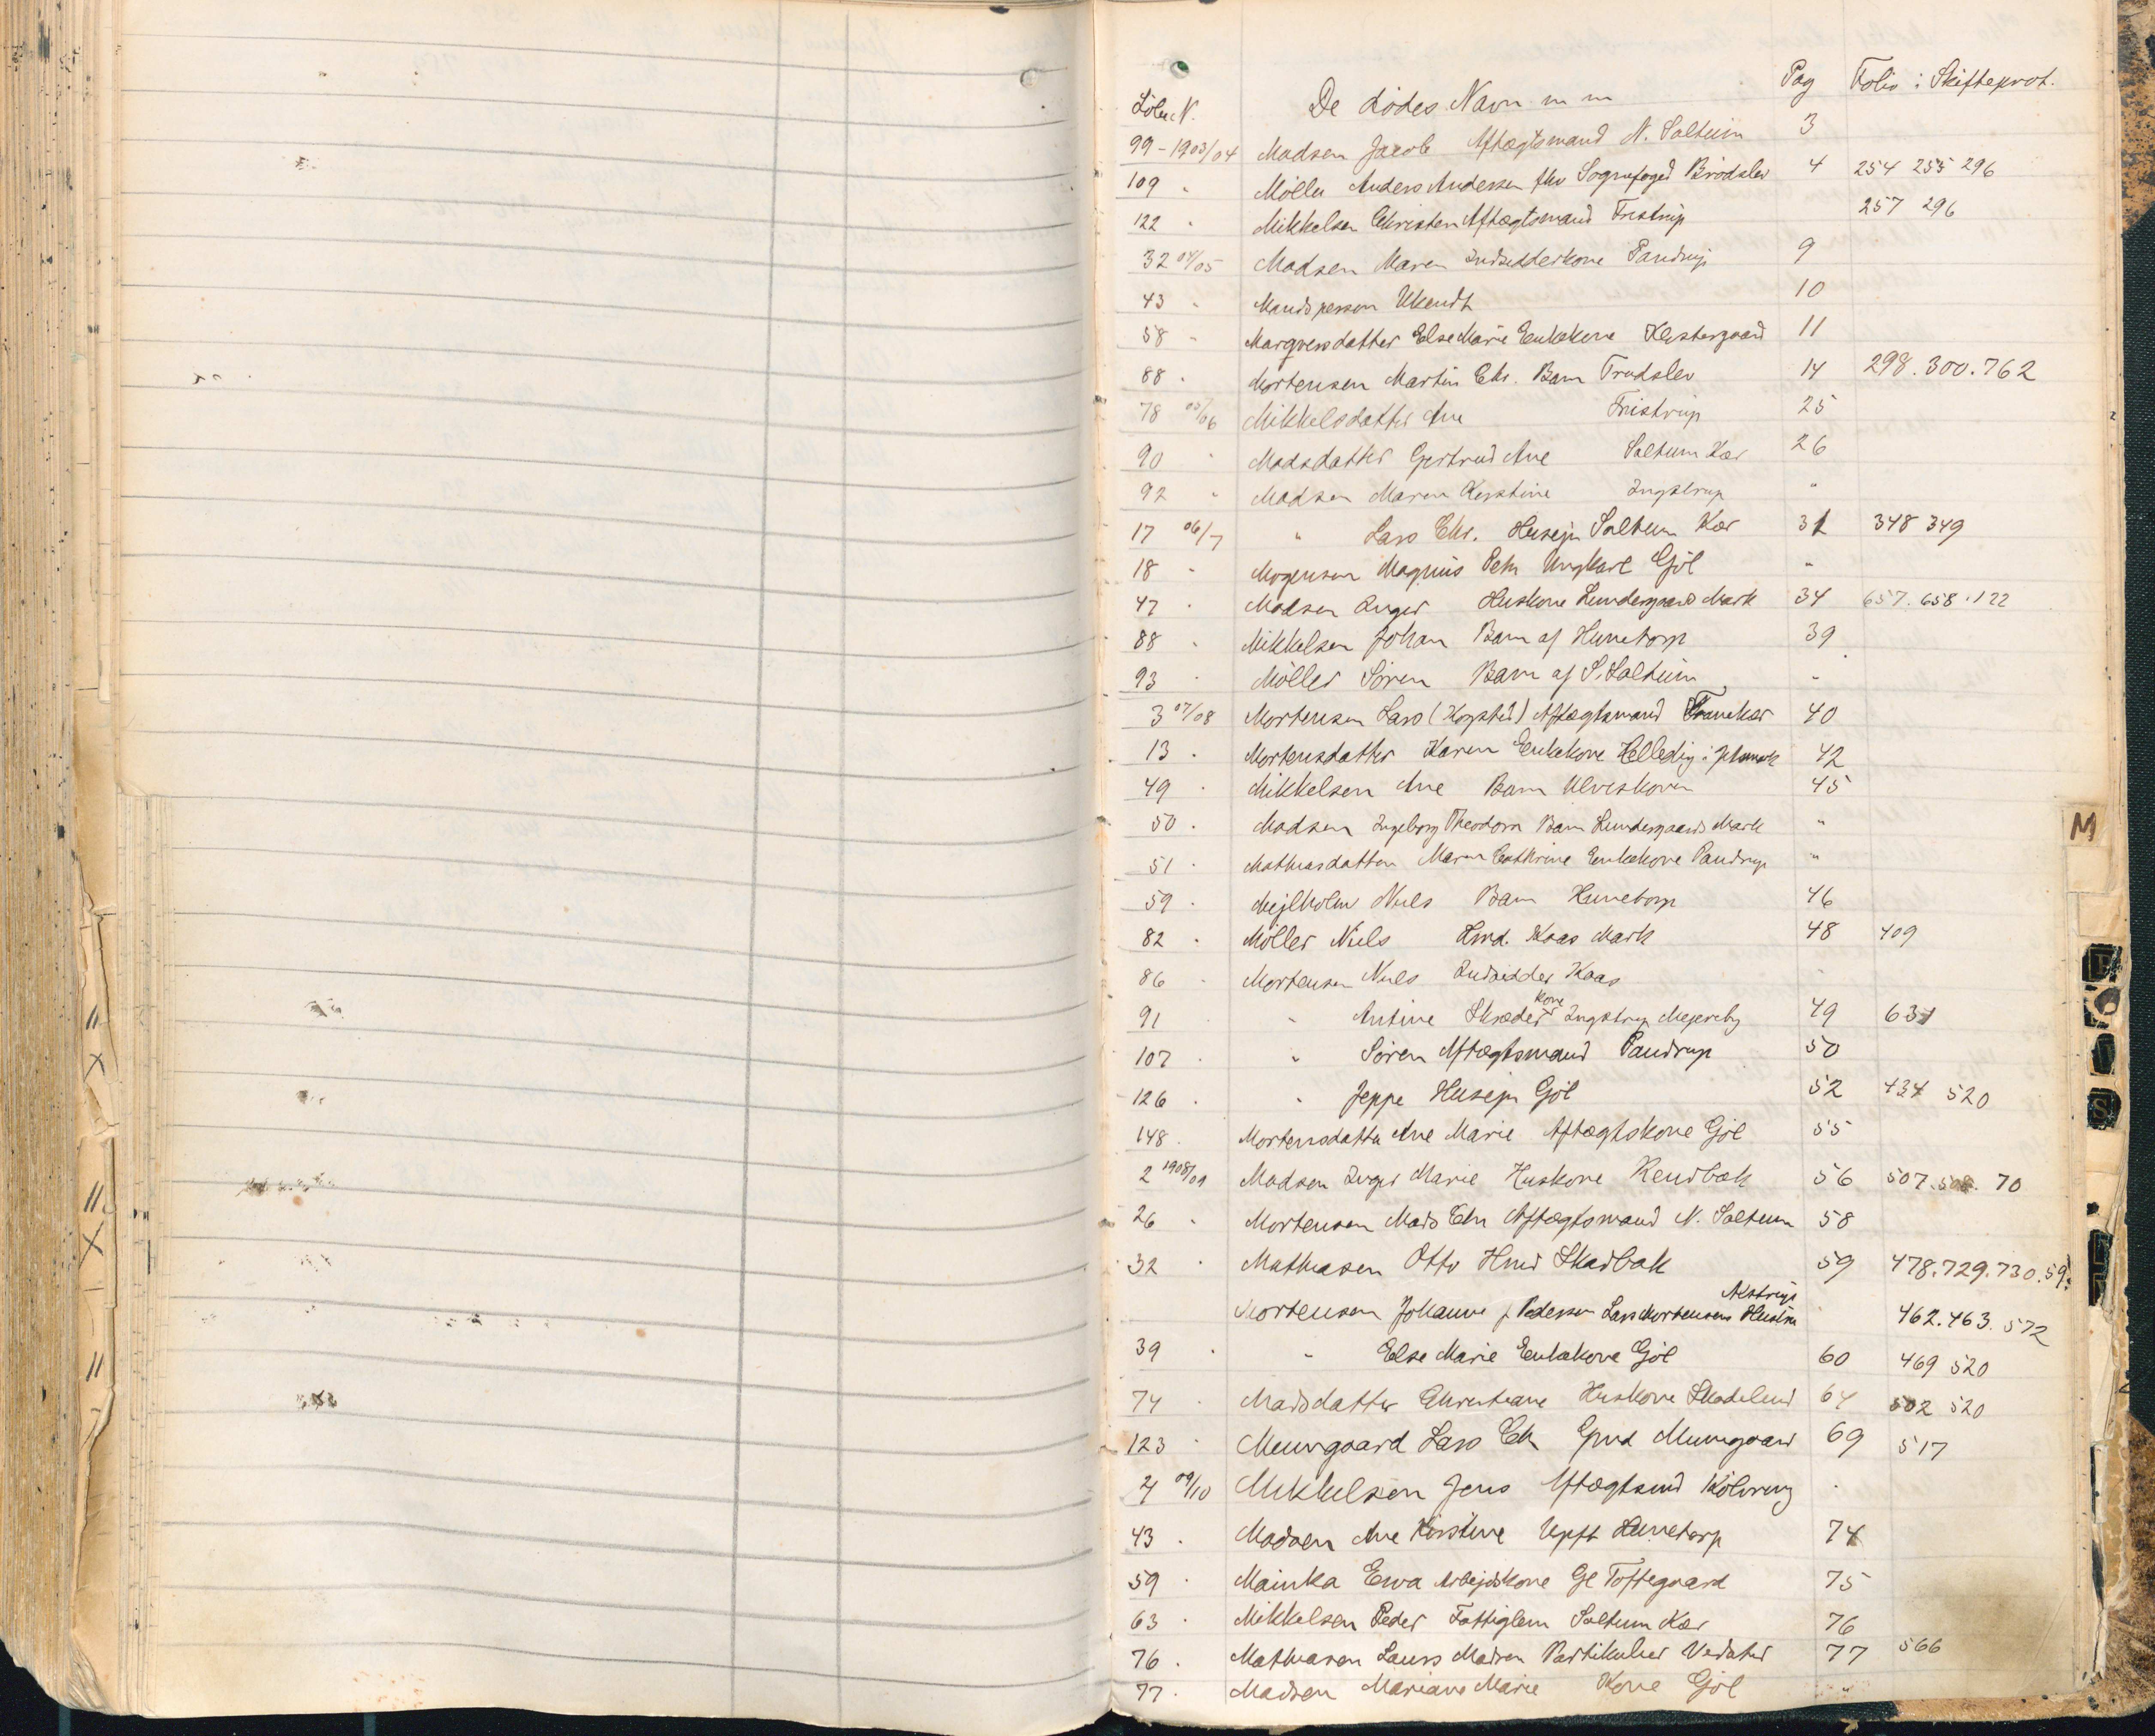 Löbe N. De dödes Navn m m Pag Folio i Skifteprot.
99 - 1903/04 Madsen Jacob Aftægtsmand N. Saltum 3
109 " Möller Anders Andersen fhv Sognefoged Brödslev 4 254 255 296
122 " Mikkelsen Christen Aftægtsmand Fristrup 257 296
32 04/05 Madsen Maren Indsidderkone Pandrup 9
43 " Mandsperson Ukendt 10
58 " Margversdatter Else Marie Enkekone Klostergaard 11
88 " Mortensen Martin Chr. Barn Trudslev 14 298.300.762
78 05/06 Mikkelsdatter Ane Fristrup 25
90 " Madsdatter Gertrud Ane Saltum Kær 26
92 " Madsen Maren Kirstine Ingstrup "
17 06/7 " Lars Chr. Husejer Saltum Kær 31 348 349
18 " Mogensen Magnus Peter Ungkarl Gjöl "
47 " Madsen Inger Huskone Lundergaards Mark 34 657.658.122
88 " Mikkelsen Johan Barn af Hunetorp 39
93 " Möller Sören Barn af S. Saltum "
3 07/08 Mortensen Lars (Kogsted) Aftægtsmand Tranekær 40
13 " Mortensdatter Karen Enkekone Helledig i Jetsmark 42
49 " Mikkelsen Ane Barn Ulveskoven 45
50 " Madsen Ingeborg Theodora Barn Lundergaards Mark "
51 " Mathiasdatter Maren Cathrine Enkekone Pandrup "
59 " Mejlholm Niels Barn Hunetorp 46
82 " Möller Niels Hmd. Kaas Mark 48 409
86 " Mortensen Niels Indsidder Kaas "
91 " Antine Skræder kone Ingstrup Mejeriby 49 631
107 " Sören Aftægtsmand Pandrup 50
126 " " Jeppe Husejer Gjöl 52 434 520
148 " Mortensdatter Ane Marie Aftægtskone Gjöl 55
2 1908/09 Madsen Inger Marie Huskone Rendbæk 56 507.508. 70
26 " Mortensen Mads Chr Aftægtsmand N. Saltum 58
32 " Mathiasen Otto Hmd Skadbak 59 478.729.730.59.
Alstrup
Mortensen Johanne f. Pedersen Lars Mortensens Hustru " 462.463.572
39 " " Else Marie Enkekone Gjöl 60 469 520
74 " Madsdatter Christiane Huskone Skodelund 64 502 520
123 " Meungaard Lars Chr Gmd Meungaard 69 517
4 09/10 Mikkelsen Jens Aftægtsmd Kölvring "
43 " Madsen Ane Kirstine Ugift Hunetorp 74
59 " Mainka Ewa Arbejdskone Gl Toftegaard 75
63 " Mikkelsen Peder Fattiglem Saltum Kær 76
76 " Mathiasen Laurs Madsen Partikulier Vedsted 77 566
77 " Madsen Mariane Marie Kone Gjöl "
M